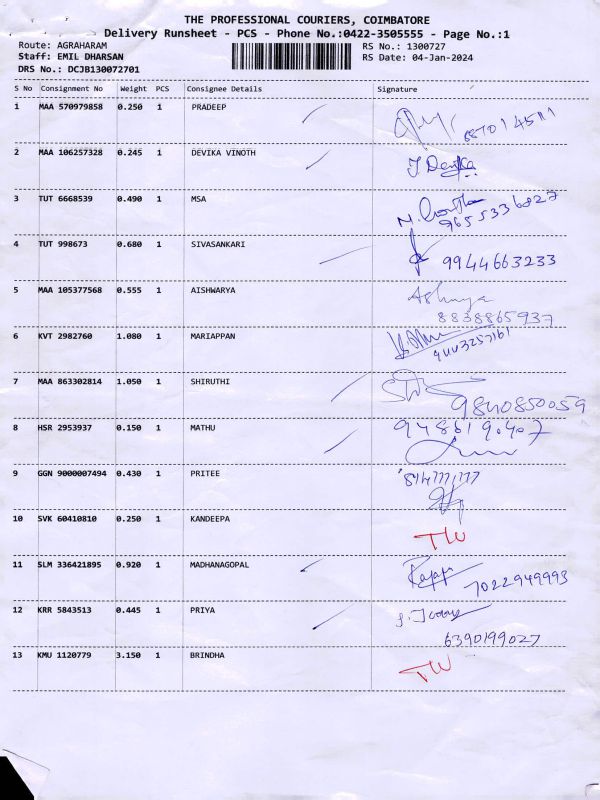 THE PROFESSIONAL COURIERS, COIMBATORE
Delivery Runsheet - PCS - Phone No.:0422-3505555 - Page No.:1
Route: AGRAHARAM
Staff: EMIL DHARSAN
DRS No.: DCJB130072701
RS No.: 1300727
RS Date: 04-Jan-2024
S No Consignment No Weight PCS Consignee Details Signature
1 MAA 570979858 0.250 1 PRADEEP
2 MAA 106257328 0.245 1 DEVIKA VINOTH J. Devika
3 TUT 6668539 0.490 1 MSA
9655336827
4 TUT 998673 0.680 1 SIVASANKARI 9944663233
5 MAA 105377568 0.555 1 AISHWARYA
8838865937
6 KVT 2982760 1.080 1 MARIAPPAN
7 MAA 863302814 1.050 1 SHIRUTHI
9840850059
8 HSR 2953937 0.150 1 MATHU
9 GGN 9000007494 0.430 1 PRITEE
10 SVK 60410810 0.250 1 KANDEEPA
11 SLM 336421895 0.920 1 MADHANAGOPAL
7022949993
12 KRR 5843513 0.445 1 PRIYA
6390199027
13 KMU 1120779 3.150 1 BRINDHA